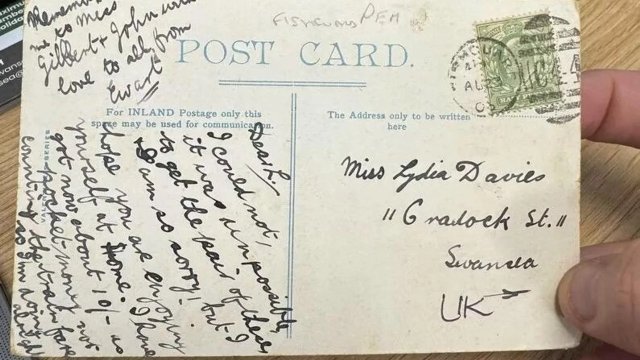 Remember
me to Miss
Gilbert & John with
love to all from
Ewart
FISHGUARD PEM
POST CARD.
For INLAND Postage only this
space may be used for communication.
The Address only to be written
here
Dear L.
I could not,
it was impossible
to get the pair of these
I am so sorry! but I
hope you are enjoying
yourself at home. I have
got now about 10/- as
pocket money not
counting the train fare
so I'm doing
SERIES
Miss Lydia Davies
"11 Cradock St."
Swansea
UK